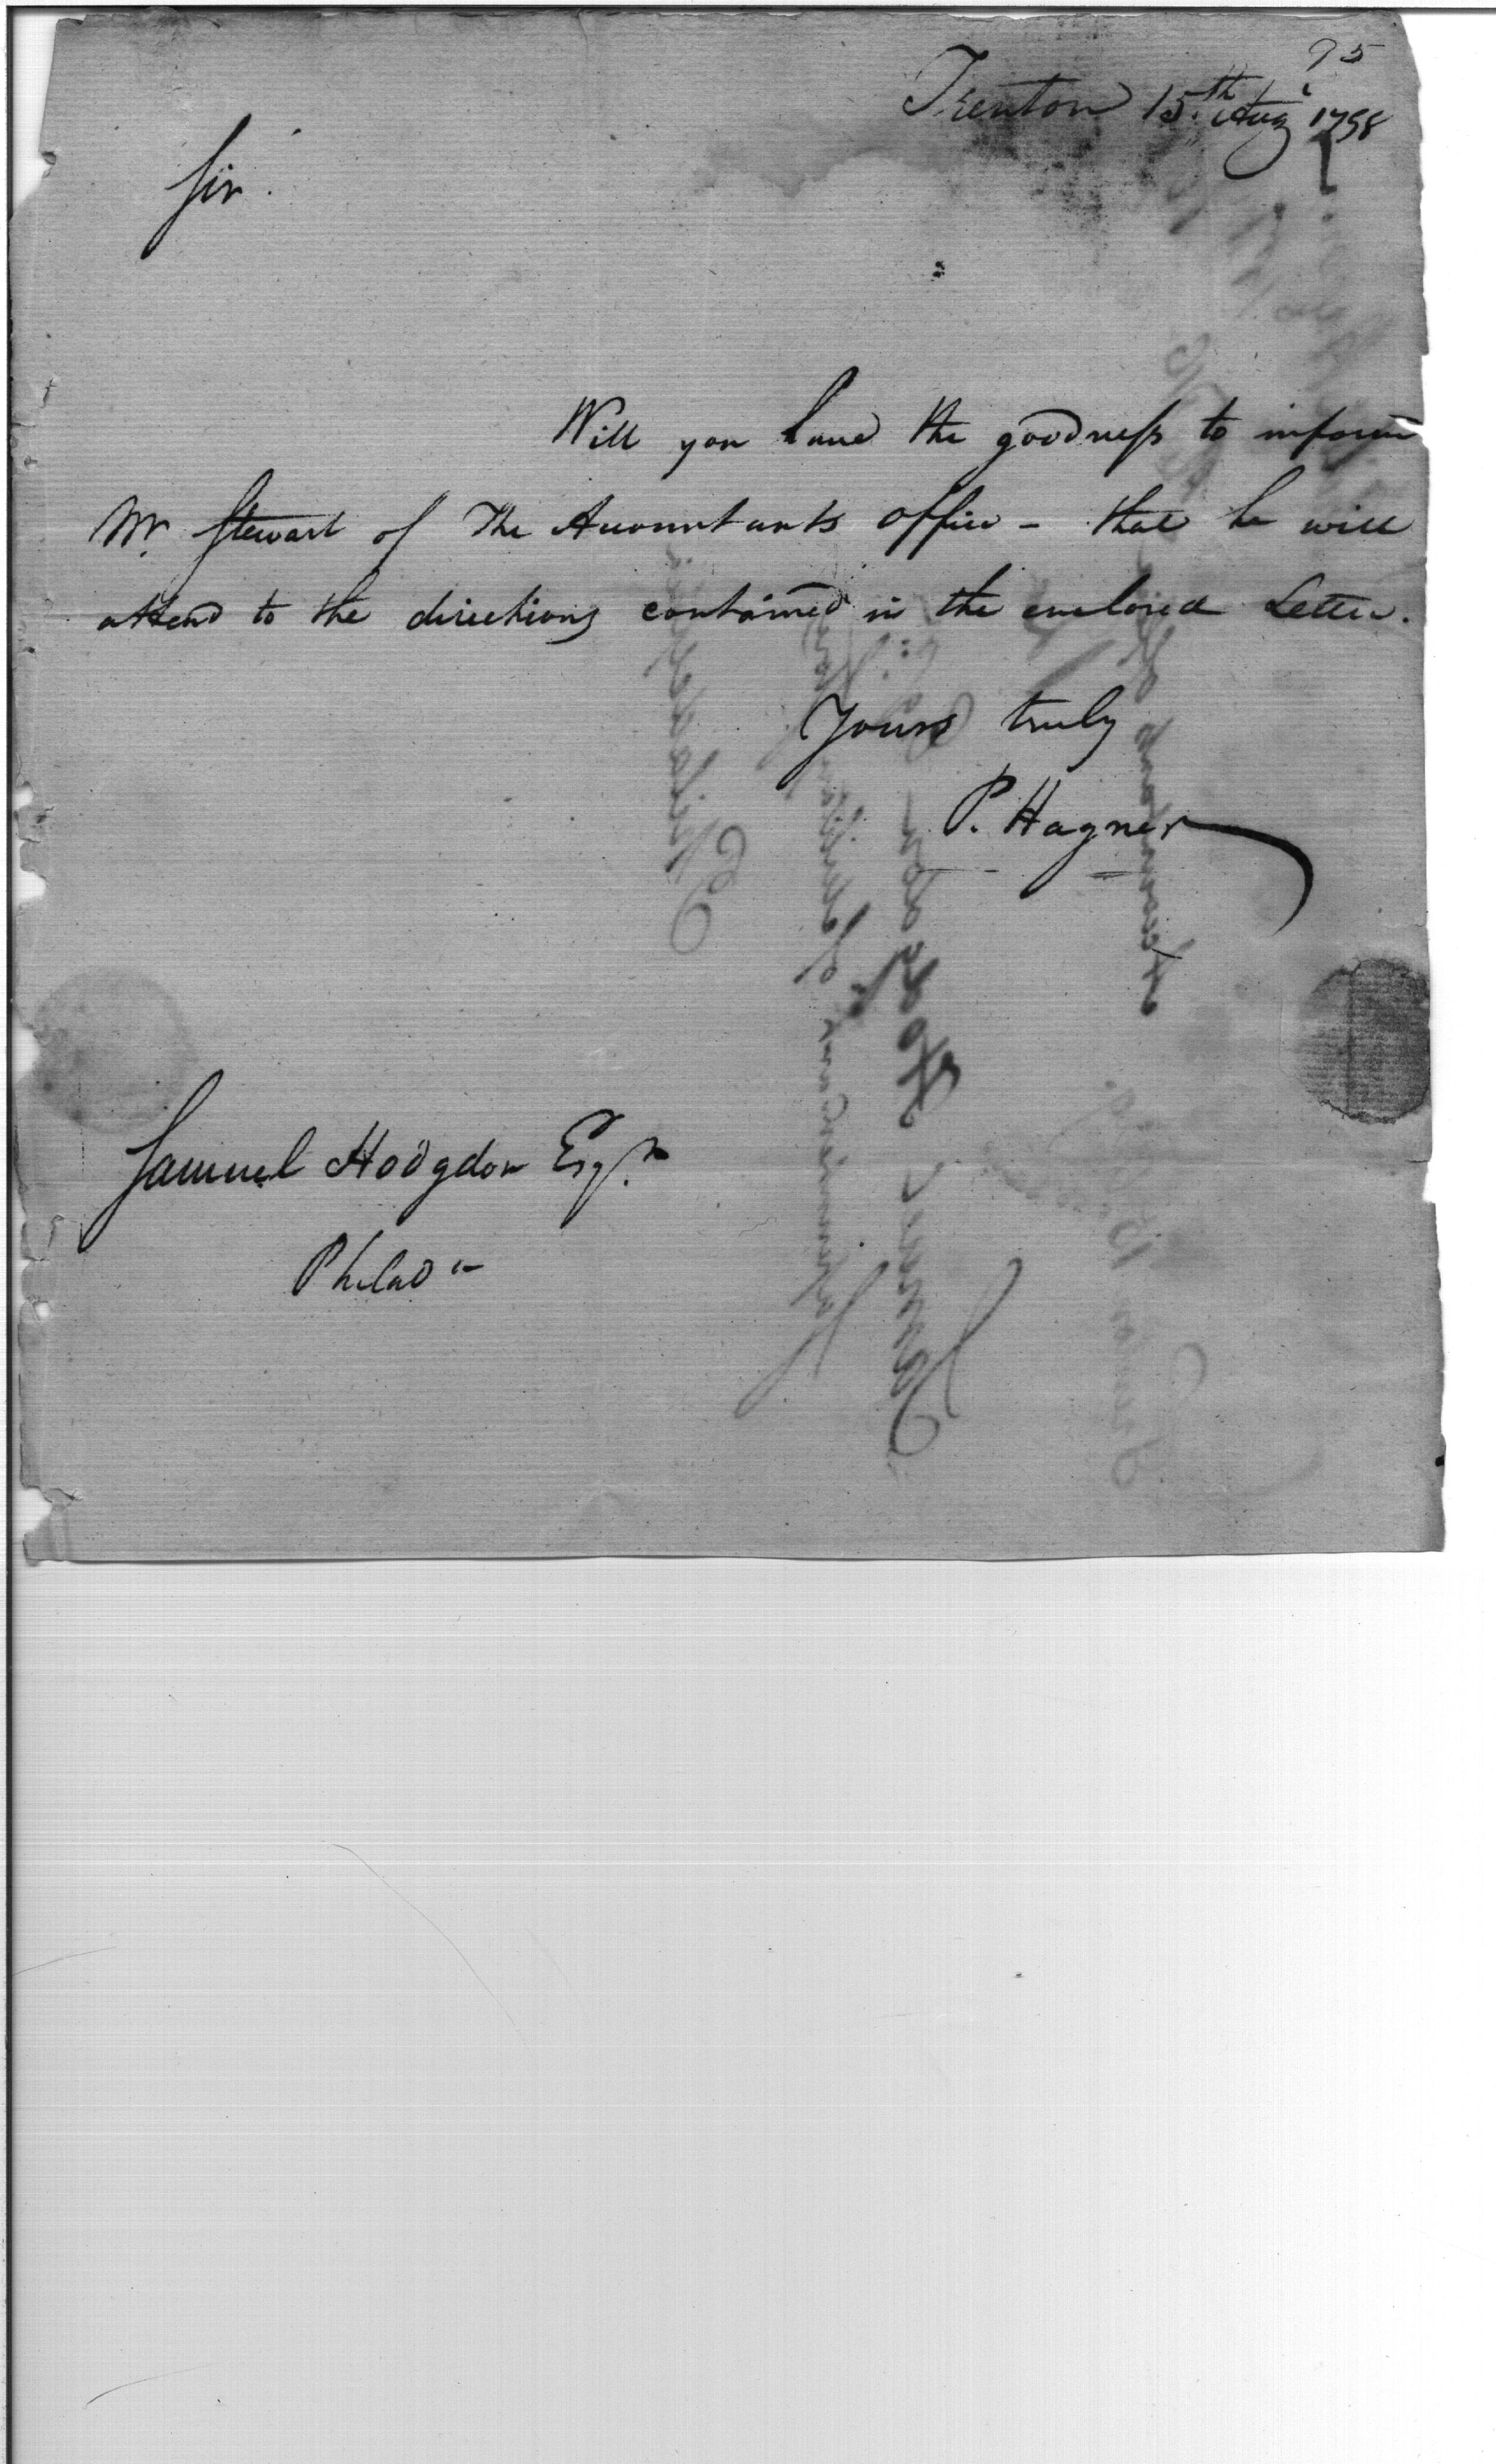 95
Trenton 15th Augt 1798
Sir.
Will you have the goodness to inform
Mr. Stewart of The Accountants office - that he will
attend to the directions contained in the enclosed Letter.
Yours truly
P. Hagner
Samuel Hodgdon Esqr.
Philada